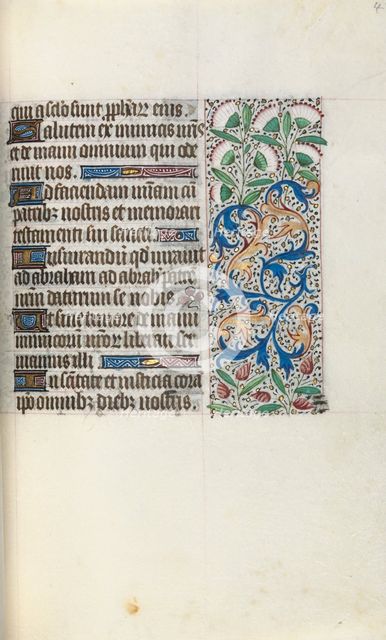 4
qui a sclo sunt pphar eius.
Salutem ex inimicis nris
et de manu omnium qui ode
runt nos.
Ad faciendam miam cū
patribz nostris et memorari
testamenti sui sancti.
Iusiurandū qd iurauit
ad abraham ad abrah patrē
nrm daturum se nobis
Ut sine timore de manu
inimicorū nrorz liberati ser
uiamus illi.
In sanctitate et iusticia corā
ipo omnibz diebz nostris.